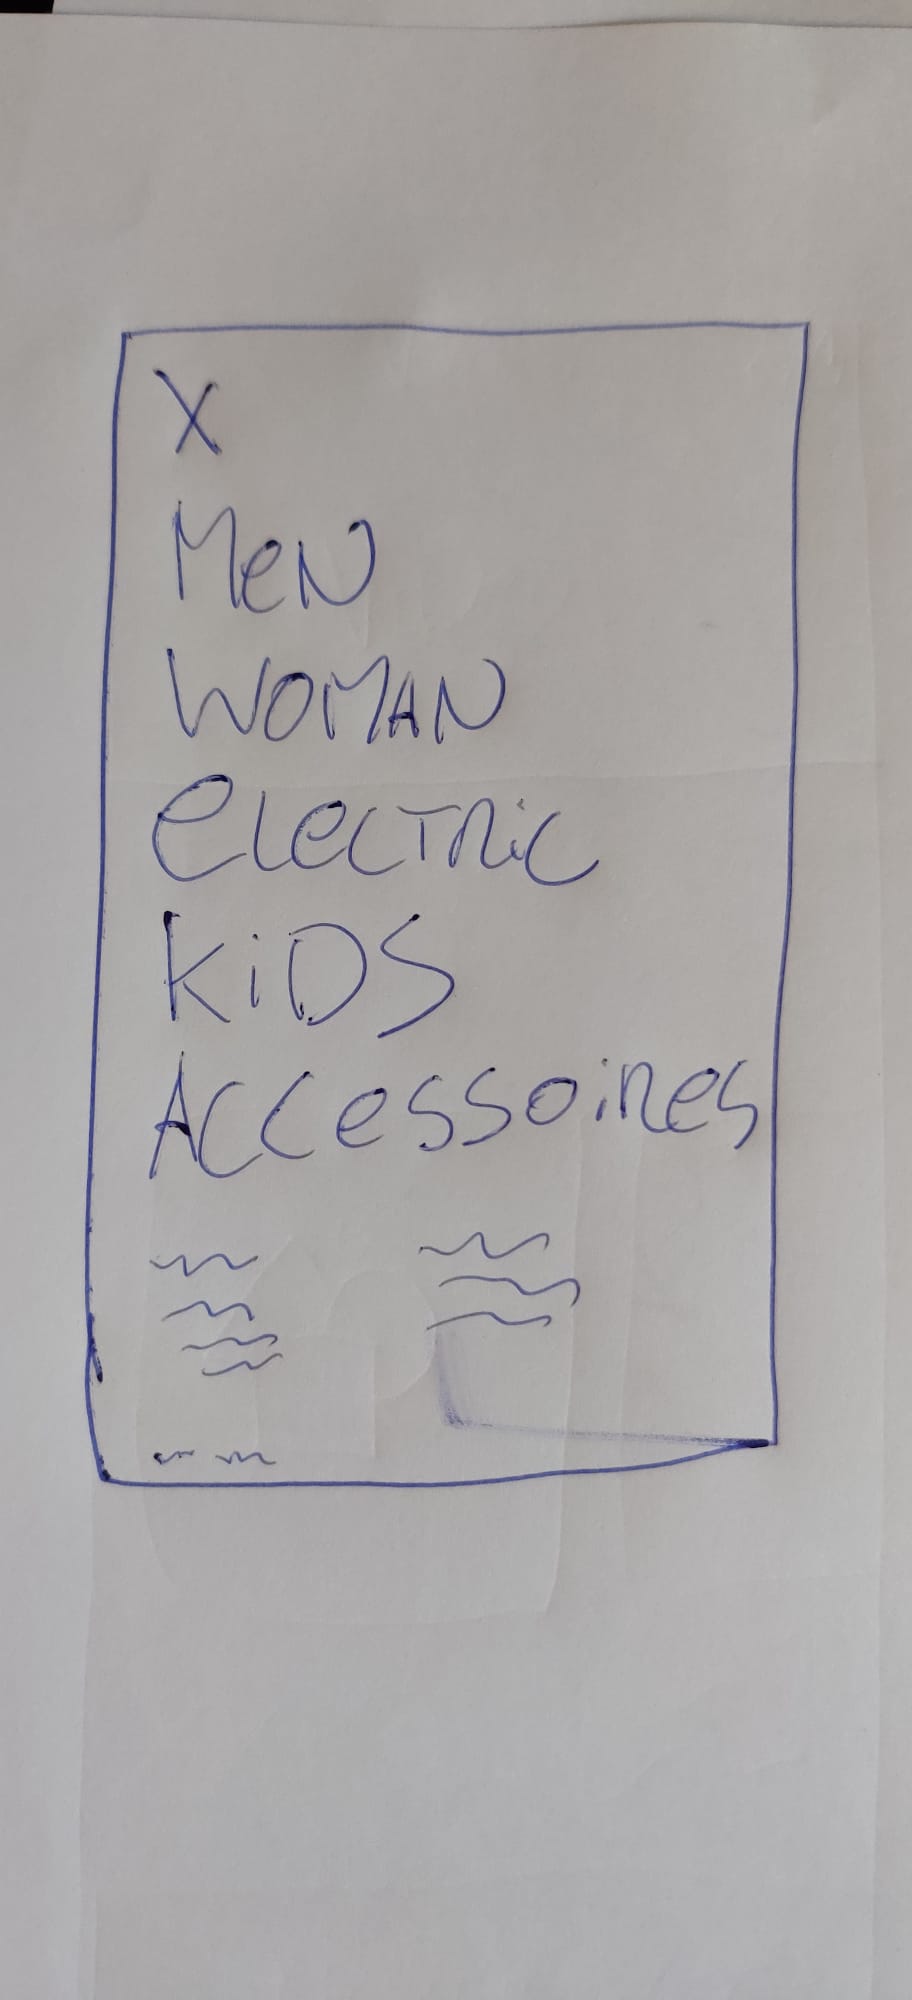 X
MeN
WOMAN
eLeCTRiC
KiDS
ACCessoiRes